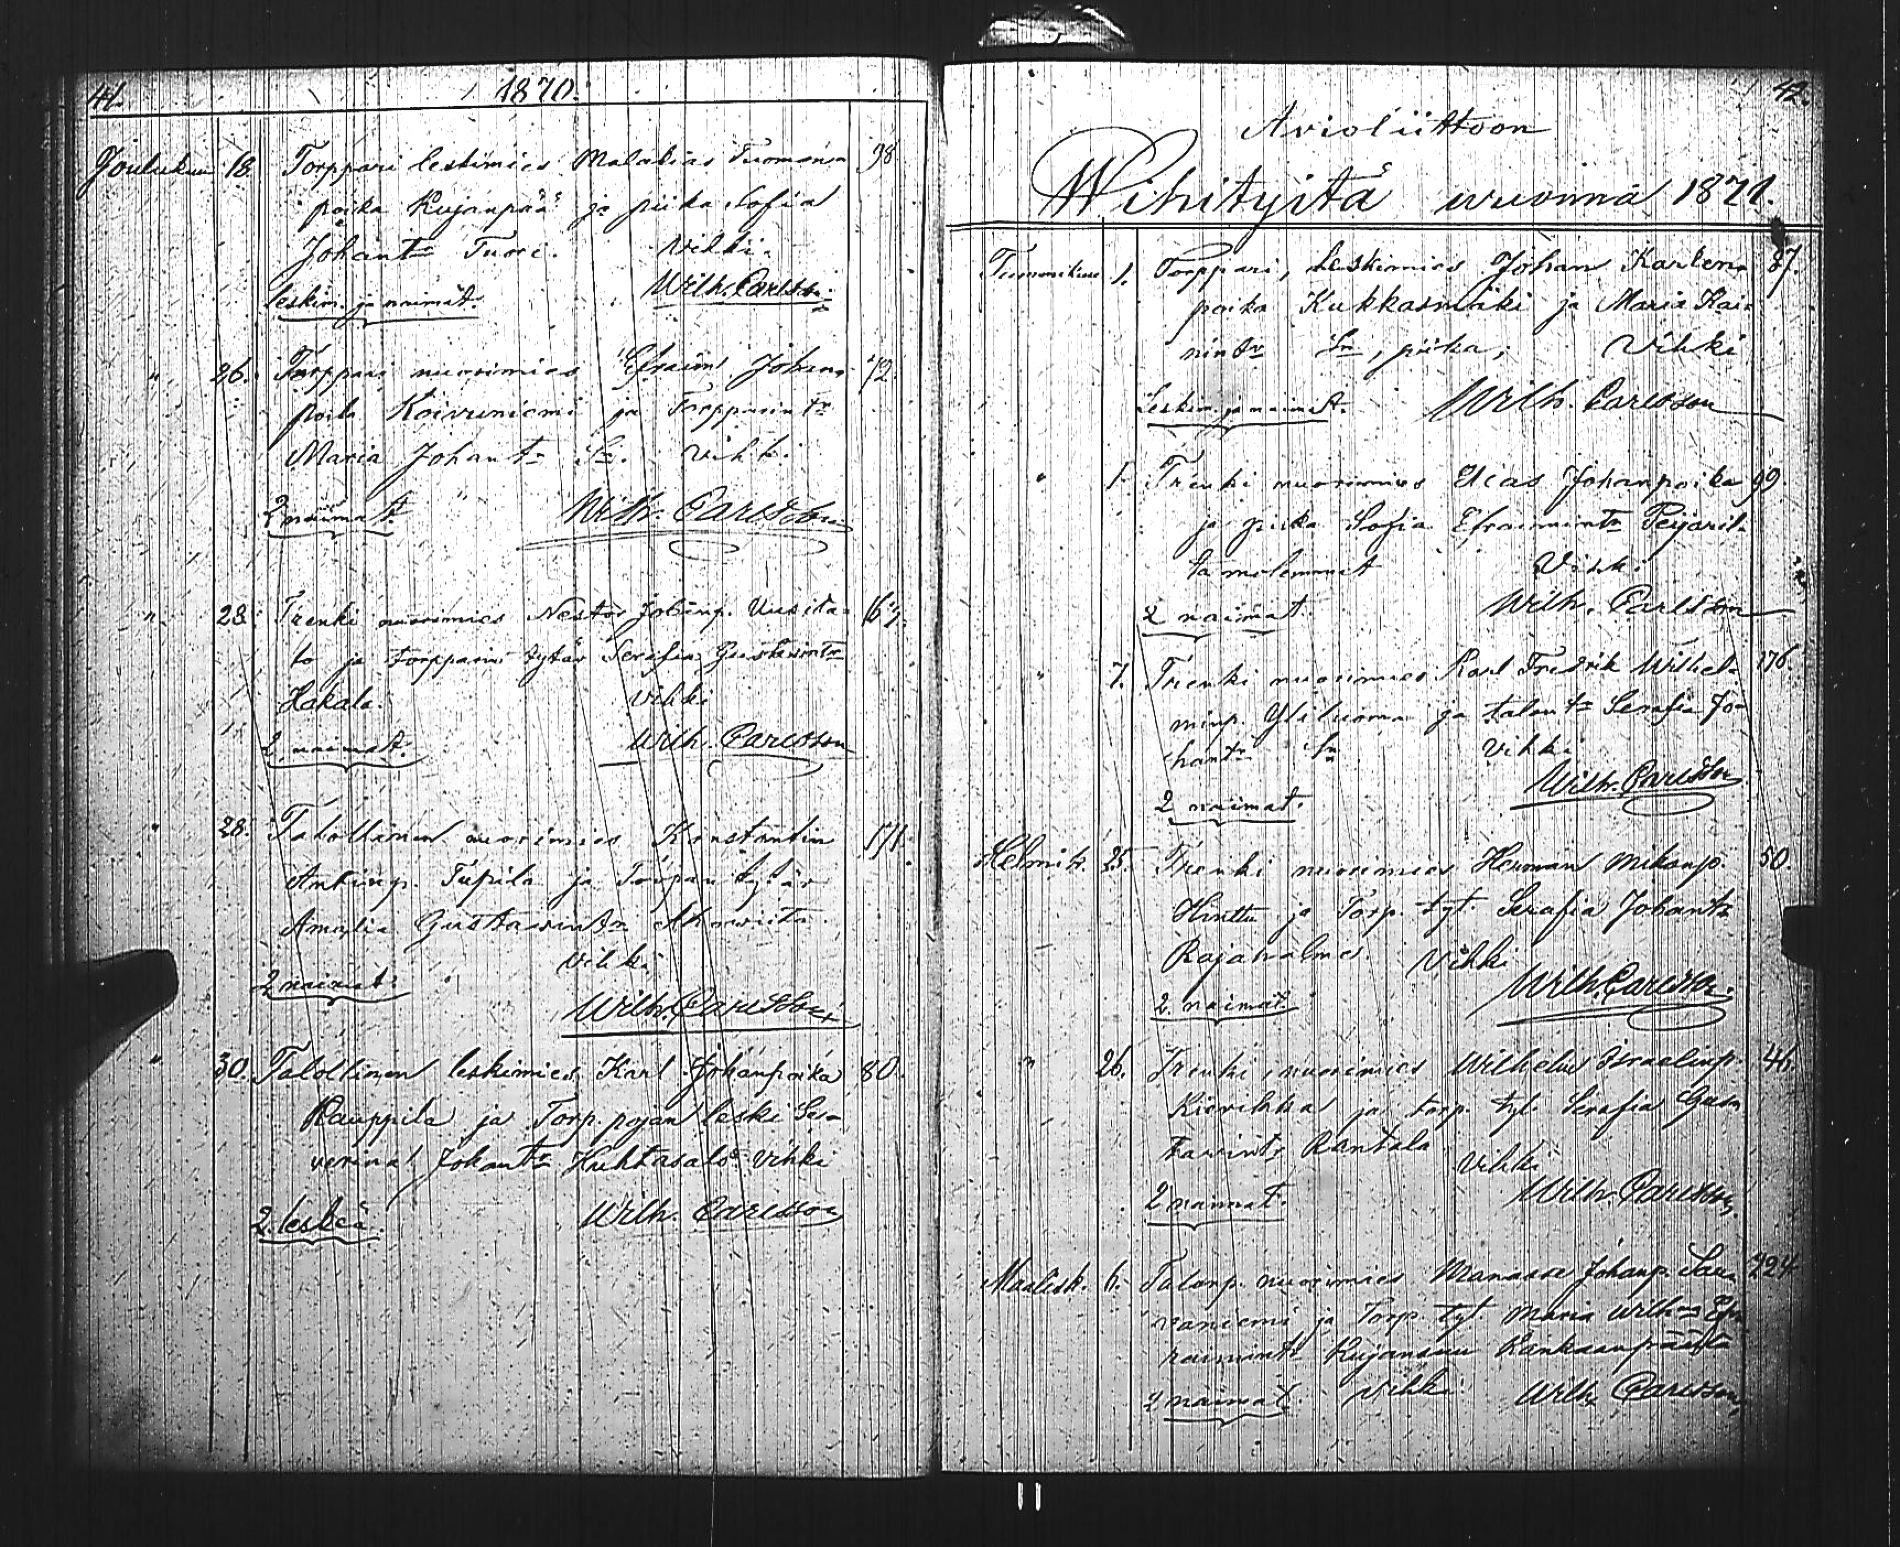 41.
1870.
Joulukuu 18. Torppari leskimies Malakias Tuomaan 98
poika Kujanpää ja piika Sofia
Johantr Tuori. Vihki:
Wilh. Carlsson.
Leskim. ja naimat.
" 26. Torppari nuorimies Efraim Johan 72.
poika Koivuniemi ja Torpparintr
Maria Johantr Sr. Vihki.
2 naimat. Wilh. Carlsson
" 28. Trenki nuorimies Nestor Johanp. Uusita-
lo ja torpparin tytär Serafia Gustavintr
Hakala. Vihki
2 naimat. Wilh. Carlsson
" 28. Talollinen nuorimies Konstantin 171.
Antinp. Tupila ja Torpan tytär
Amalia Gustavintr
Vihki
2 naimat.
Wilh. Carlsson
" 30. Talollinen leskimies Karl Johanpoika 80.
Kauppila ja Torp. pojan leski Se-
verina Johantr Huhtasalo Vihki
2 leskeä. Wilh. Carlsson
42.
Avioliittoon
Wihityitä vuonna 1871.
Tammikuu 1. Torppari, Leskimies Johan Karlen 87.
poika Kukkasmäki ja Maria Kai-
nintr Sr, piika; Vihki
Leskim. ja naimat. Wilh. Carlsson
" 1. Trenki nuorimies Elias Johanpoika 99.
ja piika Sofia Efraimintr Perjaril-
ta molemmat Vihki
2 naimat. Wilh. Carlsson
" 7. Trenki nuorimies Karl Fredrik Wilhel- 176.
minp. Yliluoma ja talontr Serafia Jo-
hantr Sr Vihki
Wilh. Carlsson
2 naimat.
Helmik. 25. Trenki nuorimies Herman Mikanp. 50.
Hinttu ja Torp. tyt. Serafia Johantr
Rajahalmes. Vihki
2 naimat. Wilh. Carlsson.
" 26. Trenki, nuorimies Wilhelm Israelinp. 46.
Kiviikka ja torp. tyt. Serafia Gus-
tavintr Rantala Vihki
2 naimat. Wilh. Carlsson
Maalisk. 6. Talonp. nuorimies Manasse Johanp. Saa- 224
raniemi ja Torp. tyt. Maria Wilhna Ef-
raimintr Kujansuu Kankaanpäästä
2 naimat. Vihki Wilh. Carlsson